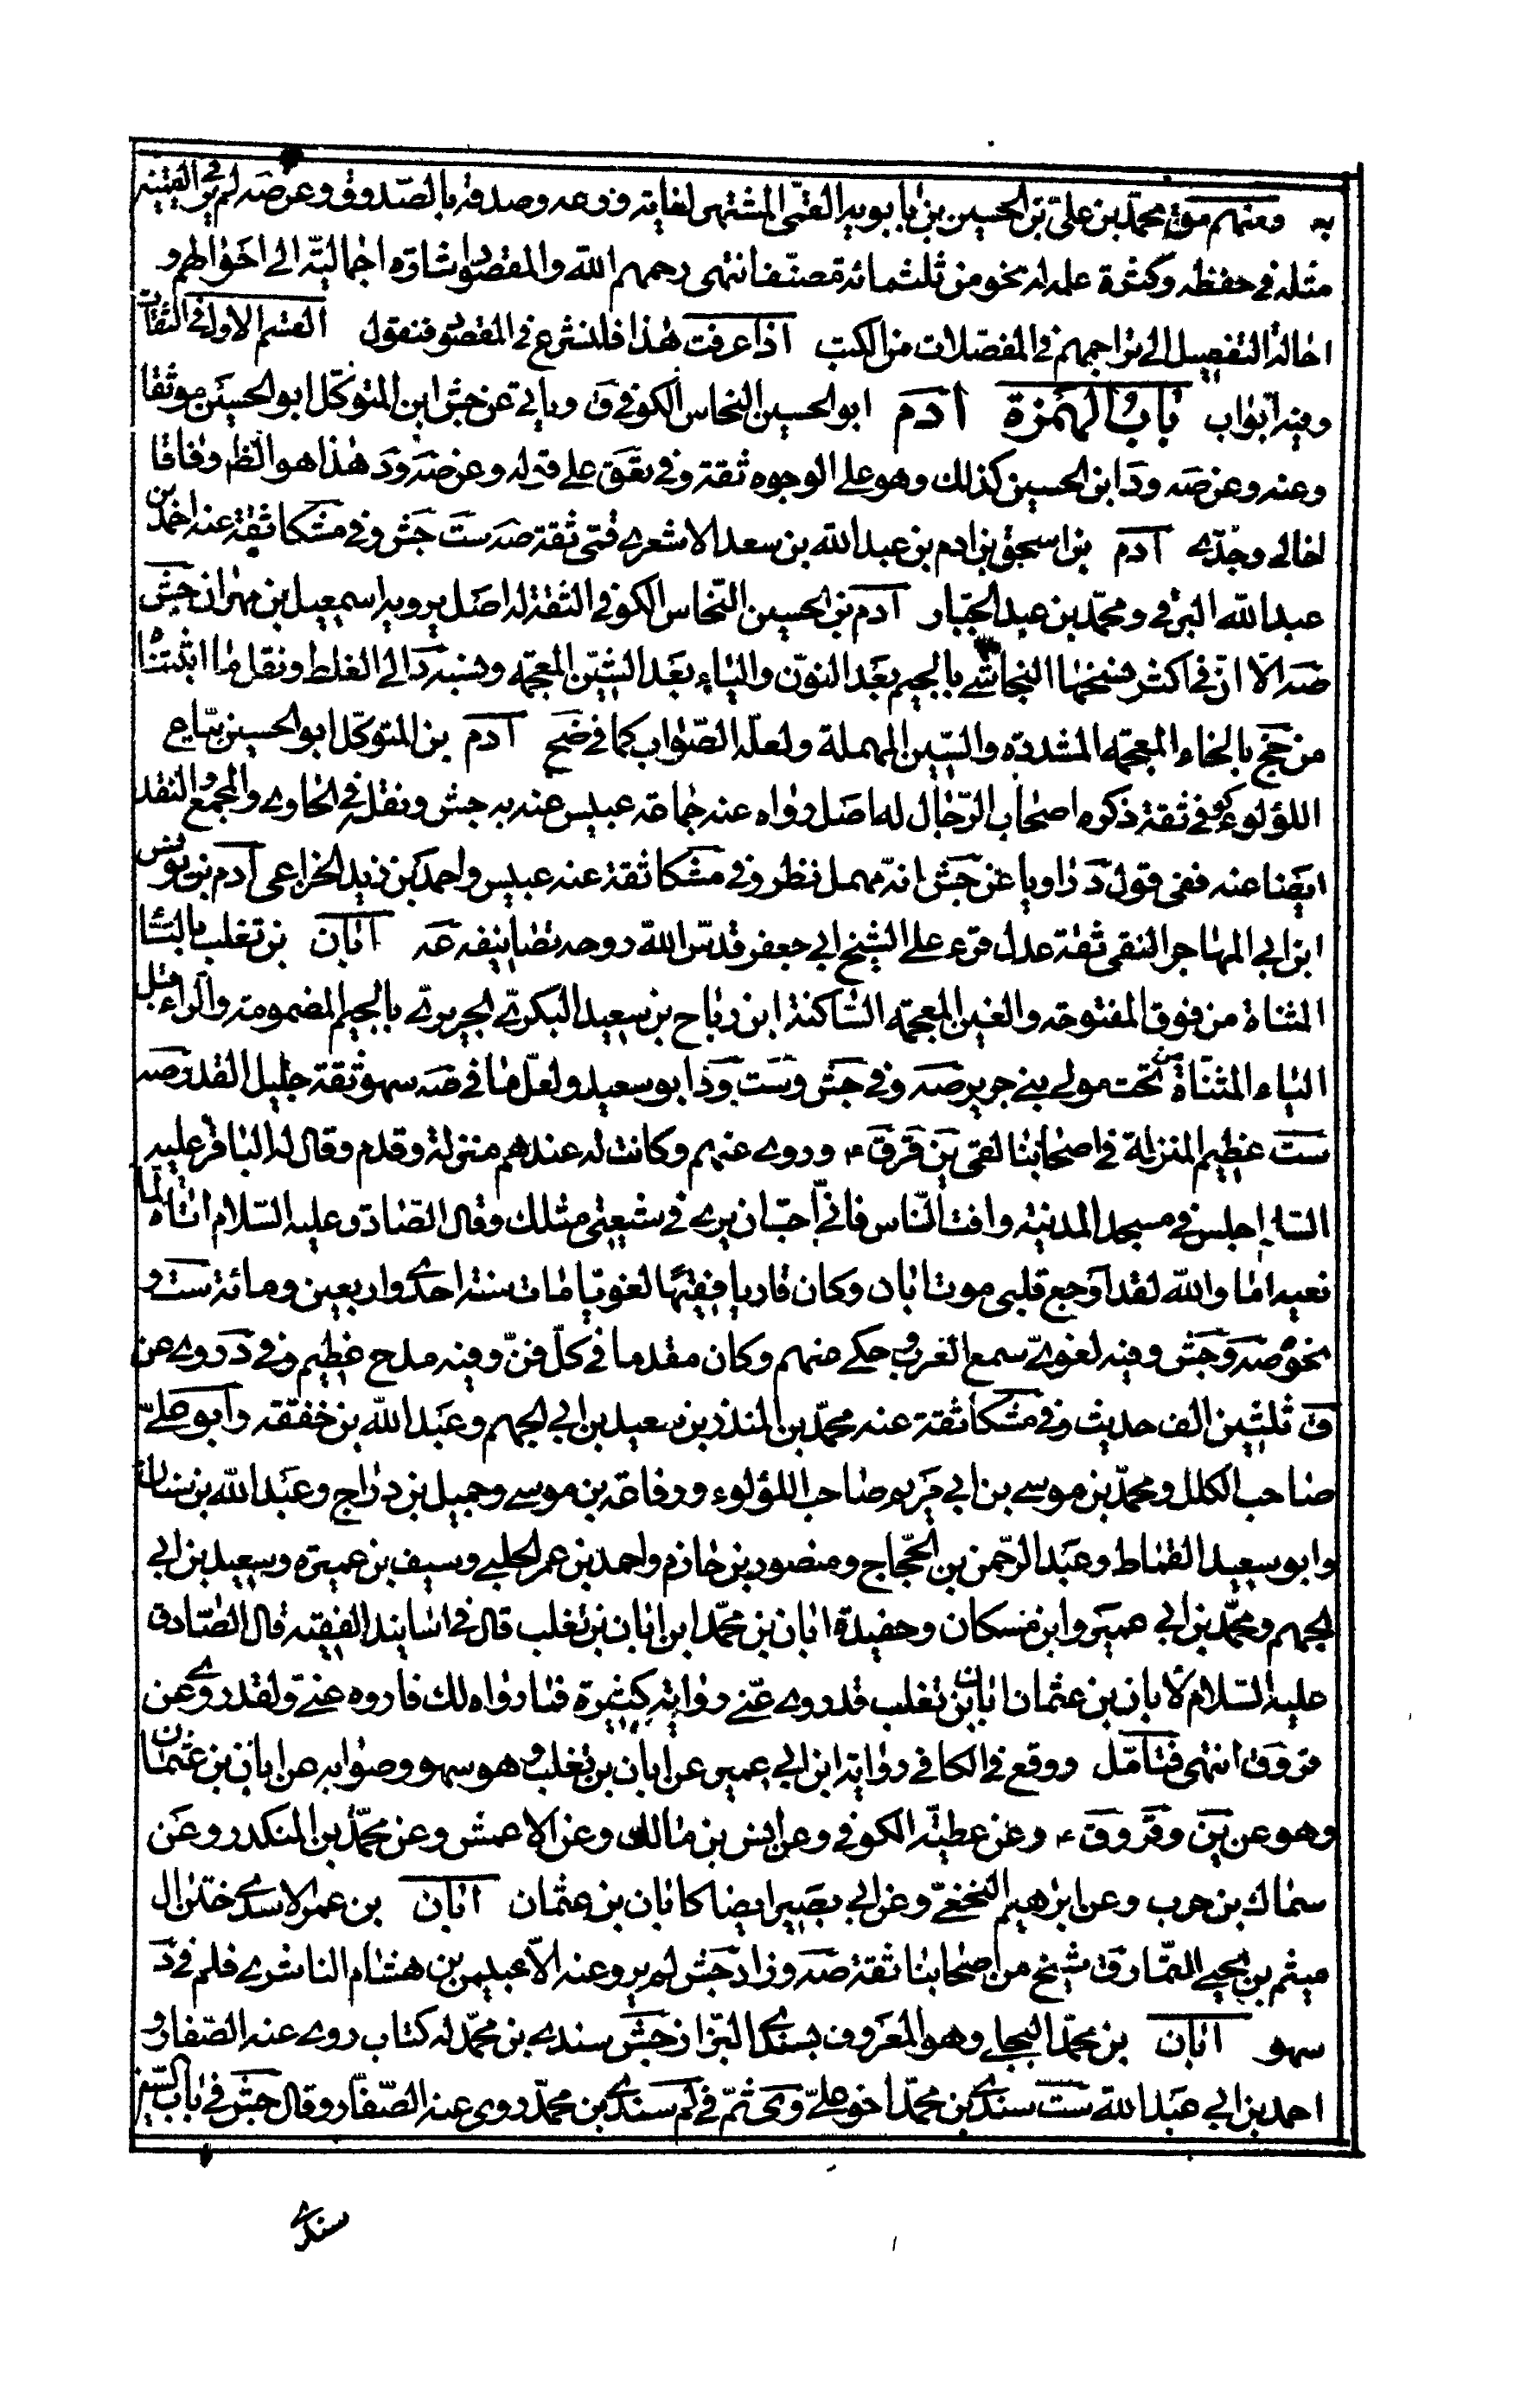 به ومنهم مق محمّد بن علىّ بن الحسين بن بابويه القمّى المشتهر لغاية ورعه وصدقه بالصّدوق وعن صه لم ير فى القميّين
مثله فى حفظه وكثرة علمه له نحو من ثلثمائة مصنّف انتهى رحمهم الله والمقصود اشارة اجماليّة الى احوالهم و
احالة التفصيل الى تراجمهم فى المفصّلات من الكتب اذا عرفت هذا فلنشرع فى المقصود فنقول القسم الاول فى الثقات
وفيه ابواب باب الهمزة ادم ابو الحسين النخاس الكوفى ق وياتى عن جش ابن المتوكّل ابو الحسين موثقا
وعنه وعن صه ود ابن الحسين كذلك وهو على الوجوه ثقة وفى تعق على قوله وعن صه ود هذا هو الظ وفاقا
لخالى وجدّى ادم بن اسحق بن ادم بن عبد الله بن سعد الاشعرى قمّى ثقة صه ست جش وفى مشكا ثقة عنه احمد بن
عبد الله البرقى ومحمّد بن عبد الجبّار ادم بن الحسين النّخاس الكوفى الثقة له اصل يرويه اسمعيل بن مهران جش
صه الّا انّ فى اكثر نسخها النجاشى بالجيم بعد النون والياء بعد الشين المعجمة ونسبه د الى الغلط ونقل ما اثبتنا
من جخ بالخاء المعجمة المشددة والسين المهملة ولعلّه الصّواب كما فى ضح ادم بن المتوكّل ابو الحسين بيّاع
اللؤلوء كوفى ثقة ذكره اصحاب الرّجال له اصل رواه عنه جماعة عبيس عنه به جش ونقله فى الحاوى والمجمع والنقد
ايضا عنه ففى قول د راويا عن جش انه مهمل نظر وفى مشكا ثقة عنه عبيس واحمد بن زيد الخزاعى ادم بن يونس
ابن ابى المهاجر النقى ثقة عدل قرء على الشيخ ابى جعفر قدّس الله روحه تصانيفه عه ابان بن تغلب بالتاء
المثناة من فوق المفتوحة والغين المعجمة الساكنة ابن رباح بن سعيد البكرىّ الجريرىّ بالجيم المضمومة والراء قبل
الياء المثنّاة من تحت مولى بنى جرير صه وفى جش وست ود ابو سعيد ولعلّ ما فى صه سهو ثقة جليل القدر صه
ست عظيم المنزلة فى اصحابنا لقى ين قر ق ء وروى عنهم وكانت له عندهم منزلة وقدم وقال له الباقر عليه
السلام اجلس فى مسجد المدينة وافت النّاس فانّى احبّ ان يرى فى شيعتى مثلك وقال الصّادق عليه السّلام لما اتاه
نعيه اما والله لقد اوجع قلبى موت ابان وكان قاريا فقيها لغويّا مات سنة احدى واربعين ومائة ست و
نحوه صه وجش وفيه لغوىّ سمع العرب وحكى عنهم وكان مقدما فى كلّ فنّ وفيه مدح عظيم وفى د روى عن
ق ثلثين الف حديث وفى مشكا ثقة عنه محمّد بن المنذر بن سعيد بن ابى الجهم وعبد الله بن خفقة وابو علىّ
صاحب الكلل ومحمّد بن موسى بن ابى مريم صاحب اللؤلوء ورفاعة بن موسى وجميل بن درّاج وعبد الله بن سنان
وابو سعيد القمّاط وعبد الرّحمن بن الحجّاج ومنصور بن حازم واحمد بن عمر الحلبى وسيف بن عميرة وسعيد بن ابى
الجهم ومحمّد بن ابى عمير وابن مسكان وحفيدة ابان بن محمّد ابن ابان بن تغلب قال فى اسانيد الفقيه قال الصّادق
عليه السّلام لابان بن عثمان ابان بن تغلب قد روى عنّى رواية كثيرة فما رواه لك فاروه عنّى ولقد روى عن
قر وق انتهى فتامّل ووقع فى الكافى رواية ابن ابى عمير عن ابان بن تغلب وهو سهو وصوابه عن ابان بن عثمان
وهو عن ين وقر وق ء وعن عطيّة الكوفى وعن انس بن مالك وعن الاعمش وعن محمّد بن المنكدر وعن
سماك بن حرب وعن ابرهيم النخعىّ وعن ابى بصير ايضا كابان بن عثمان ابان بن عمر الاسدى ختن ال
ميثم بن يحيى التمّار ق شيخ من اصحابنا ثقة صه وزاد جش لم يرو عنه الّا عبيس بن هشام الناشرى فلم فى د
سهو ابان بن محمّد البجلى وهو المعروف بسندى البزّاز جش سندى بن محمّد له كتاب روى عنه الصّفار و
احمد بن ابى عبد الله ست سندى بن محمّد اخو علىّ دى ثمّ فى لم سندى بن محمّد روى عنه الصّفّار وقال جش فى باب السين
سندى